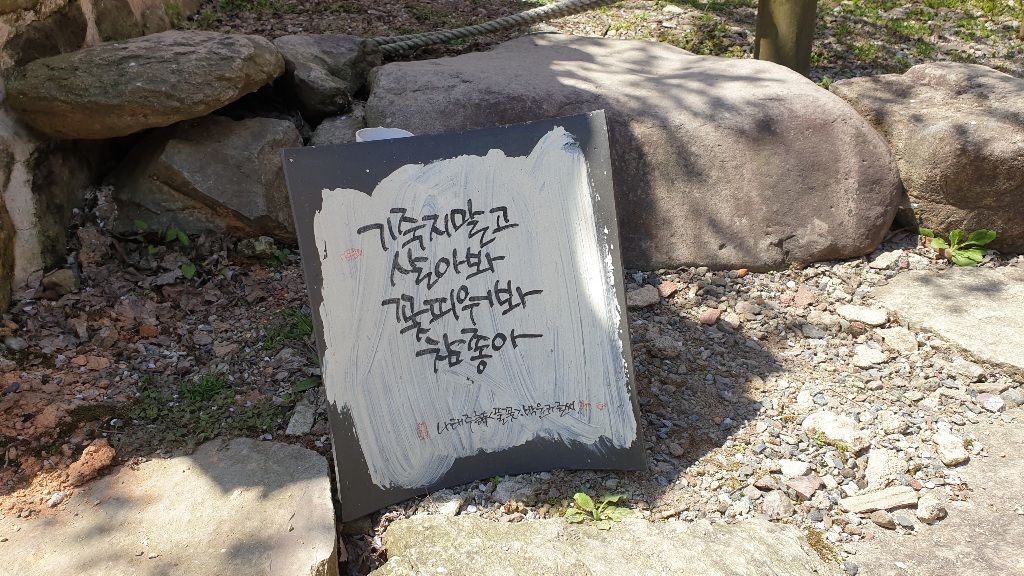 기죽지말고
살아봐
꽃피워봐
참좋아
나태주